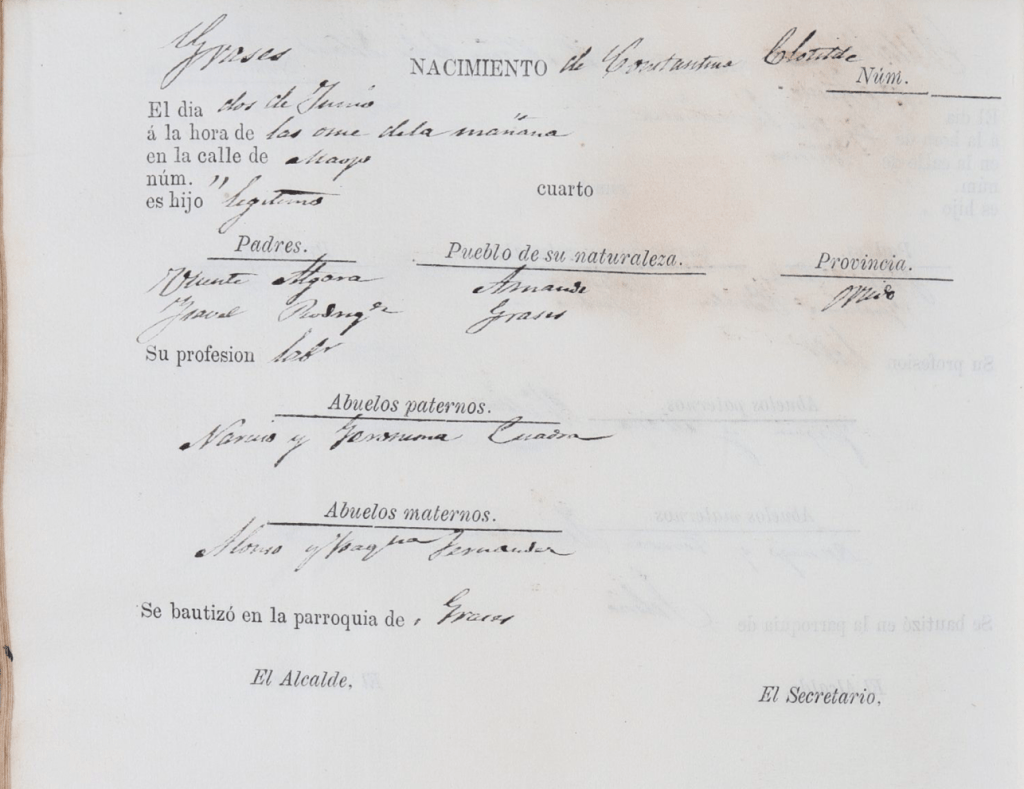 Grases
NACIMIENTO de Constantino Clotilde
Núm.
El dia dos de Junio
á la hora de las once de la mañana
en la calle de
núm. "
es hijo legitimo cuarto
Padres. Pueblo de su naturaleza. Provincia.
Vicente Algara Arnande Oviedo
Isavel Rodrigz Grases
Su profesion labr
Abuelos paternos.
Narciso y Geronima Cuadra
Abuelos maternos.
Alonso y Fernandez
Se bautizó en la parroquia de Grases
El Alcalde,
El Secretario,